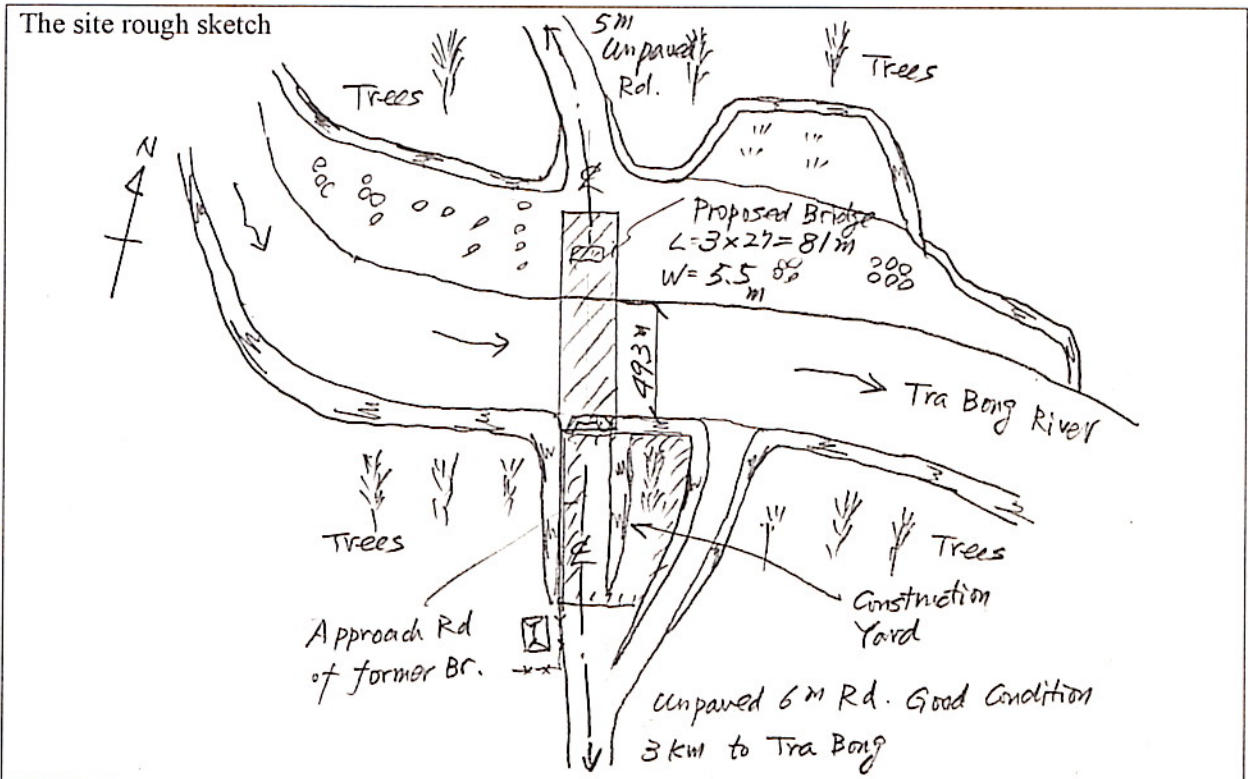 The site rough sketch
5m
Unpaved
Rd.
Trees
Trees
N
℄
Proposed Bridge
L=3×27=81m
W=5.5
m
493m
Tra Bong River
Trees
Trees
℄
Construction
Yard
Approach Rd
of former Br.
Unpaved 6m Rd. Good Condition
3 km to Tra Bong